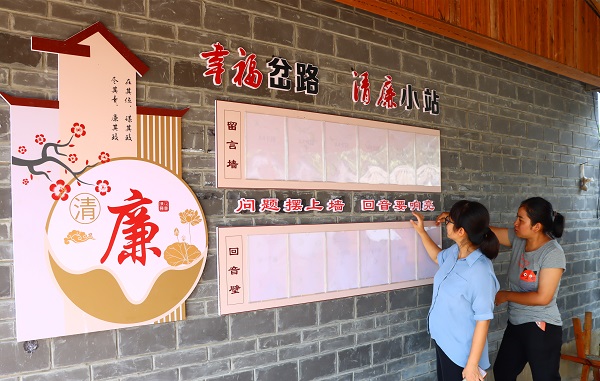 幸福岔路 清廉小站
在其位，谋其政
尽其责，廉其政
清
廉
留言墙
问题摆上墙 回音要响亮
回音壁